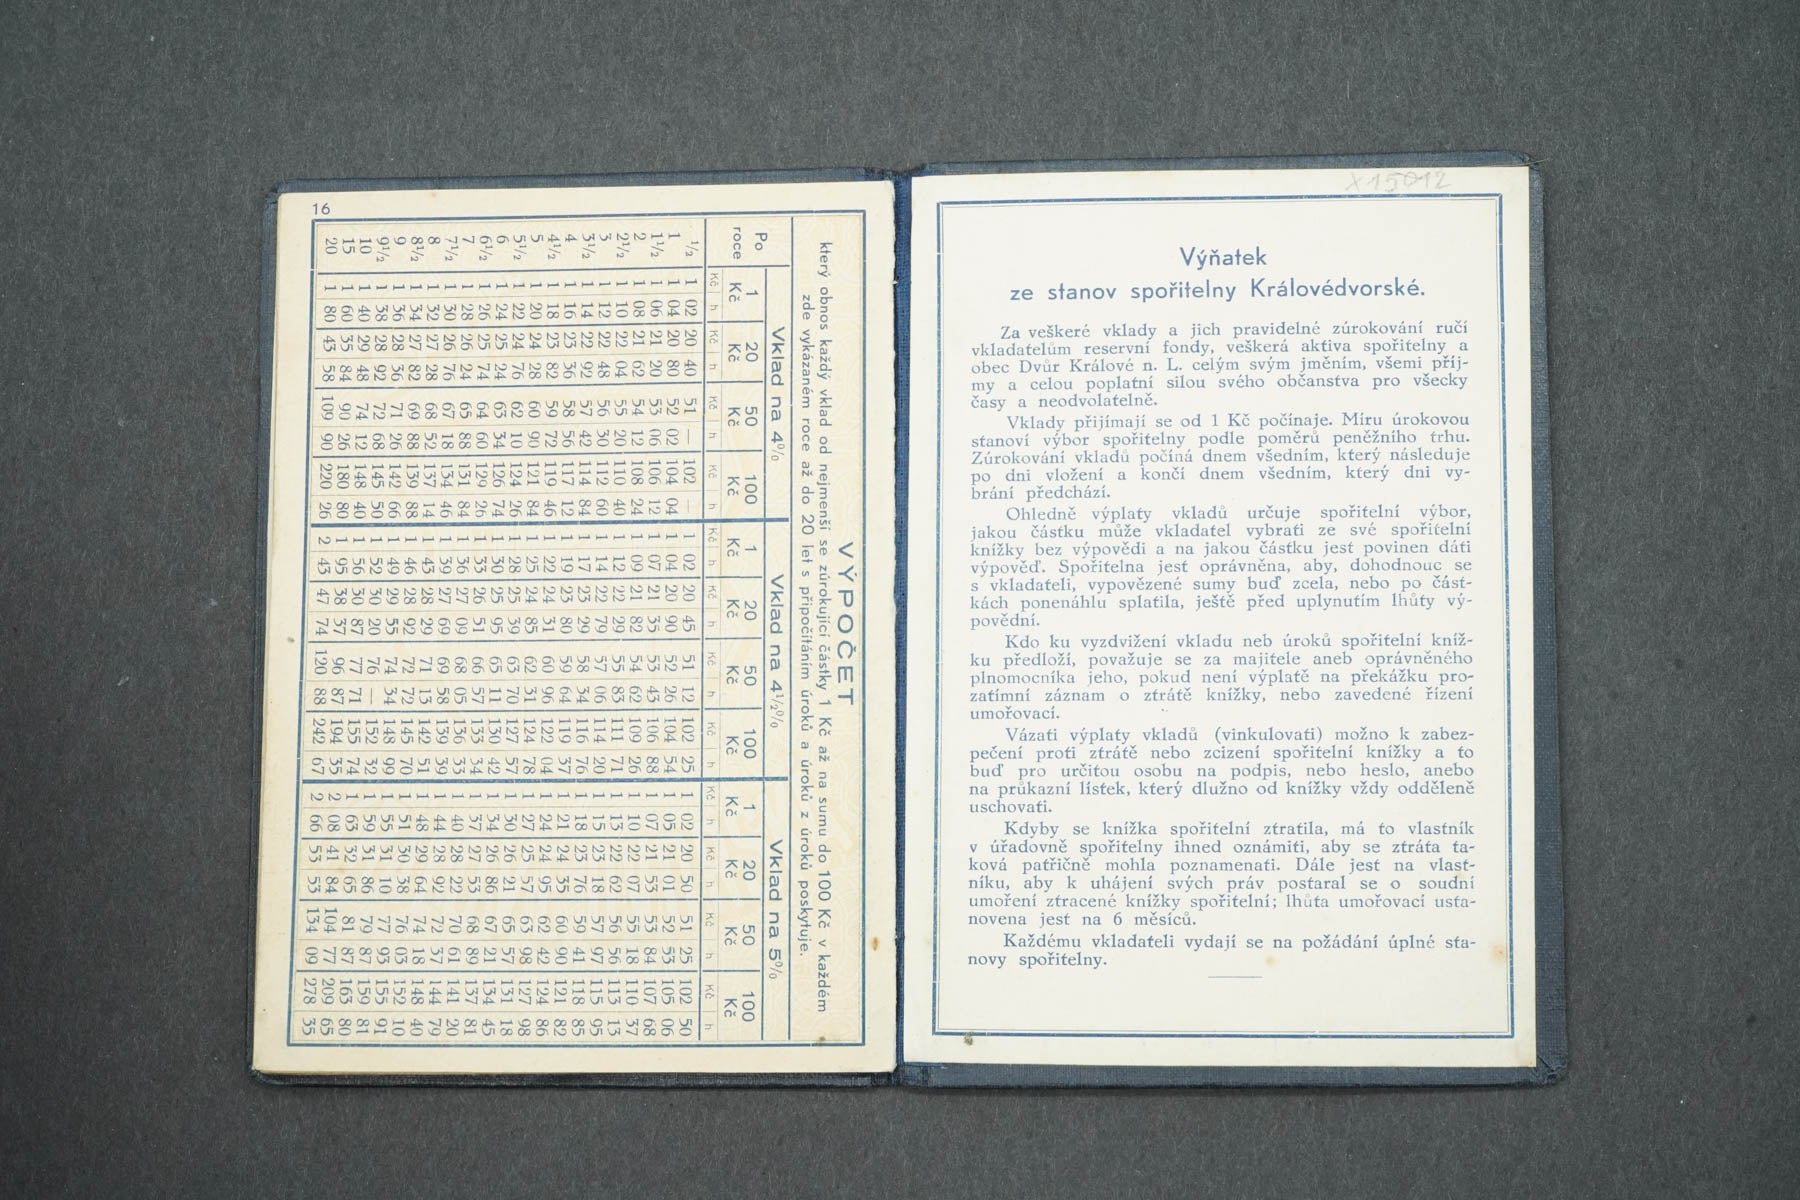 16
VÝPOČET
který obnos každý vklad od nejmenší se zúrokující částky 1 Kč až na sumu do 100 Kč v každém
zde vykázaném roce až do 20 let s připočítáním úroků a úroků z úroků poskytuje.
Po roce Vklad na 4% Vklad na 4½% Vklad na 5%
1 Kč 20 Kč 50 Kč 100 Kč 1 Kč 20 Kč 50 Kč 100 Kč 1 Kč 20 Kč 50 Kč 100 Kč
Kč h Kč h Kč h Kč h Kč h Kč h Kč h Kč h Kč h Kč h Kč h Kč h
½ 1 02 20 40 51 — 102 — 1 02 20 45 51 12 102 25 1 02 20 50 51 25 102 50
1 1 04 20 80 52 02 104 04 1 04 20 90 52 26 104 54 1 05 21 01 52 53 105 06
1½ 1 06 21 20 53 06 106 12 1 07 21 35 53 43 106 88 1 07 21 53 53 84 107 68
2 1 08 21 62 54 12 108 24 1 09 21 82 54 62 109 26 1 10 22 07 55 18 110 37
2½ 1 10 22 04 55 20 110 40 1 12 22 29 55 83 111 71 1 13 22 62 56 56 113 13
3 1 12 22 48 56 30 112 60 1 14 22 79 57 06 114 20 1 15 23 18 57 97 115 95
3½ 1 14 22 92 57 42 114 84 1 17 23 29 58 34 116 76 1 18 23 76 59 41 118 85
4 1 16 23 36 58 56 117 12 1 19 23 80 59 64 119 37 1 21 24 35 60 90 121 82
4½ 1 18 23 82 59 72 119 46 1 22 24 31 60 96 122 04 1 24 24 95 62 42 124 86
5 1 20 24 28 60 90 121 84 1 25 24 85 62 31 124 78 1 27 25 57 63 98 127 98
5½ 1 22 24 76 62 10 124 26 1 28 25 39 63 70 127 57 1 30 26 21 65 57 131 18
6 1 24 25 24 63 34 126 74 1 30 25 95 65 11 130 42 1 34 26 86 67 21 134 45
6½ 1 26 25 74 64 60 129 26 1 33 26 51 66 57 133 34 1 37 27 53 68 89 137 81
7 1 28 26 24 65 88 131 84 1 36 27 09 68 05 136 33 1 40 28 22 70 61 141 20
7½ 1 30 26 76 67 18 134 46 1 39 27 69 69 58 139 39 1 44 28 92 72 37 144 79
8 1 32 27 28 68 52 137 14 1 43 28 29 71 13 142 51 1 48 29 64 74 18 148 40
8½ 1 34 27 82 69 88 139 88 1 46 28 92 72 72 145 70 1 51 30 38 76 03 152 10
9 1 36 28 36 71 26 142 66 1 49 29 55 74 34 148 99 1 55 31 10 77 93 155 91
9½ 1 38 28 92 72 68 145 50 1 52 30 20 76 — 152 32 1 59 31 86 79 87 159 81
10 1 40 29 48 74 12 148 40 1 56 30 87 77 71 155 74 1 63 32 65 81 87 163 80
15 1 60 35 84 90 26 180 80 1 95 38 37 96 87 194 35 2 08 41 84 104 77 209 65
20 1 80 43 58 109 90 220 26 2 43 47 74 120 88 242 67 2 66 53 53 134 09 278 35
X15012
Výňatek
ze stanov spořitelny Královédvorské.
Za veškeré vklady a jich pravidelné zúrokování ručí
vkladatelům reservní fondy, veškerá aktiva spořitelny a
obec Dvůr Králové n. L. celým svým jměním, všemi příj-
my a celou poplatní silou svého občanstva pro všecky
časy a neodvolatelně.
Vklady přijímají se od 1 Kč počínaje. Míru úrokovou
stanoví výbor spořitelny podle poměrů peněžního trhu.
Zúrokování vkladů počíná dnem všedním, který následuje
po dni vložení a končí dnem všedním, který dni vy-
brání předchází.
Ohledně výplaty vkladů určuje spořitelní výbor,
jakou částku může vkladatel vybrati ze své spořitelní
knížky bez výpovědi a na jakou částku jest povinen dáti
výpověď. Spořitelna jest oprávněna, aby, dohodnouc se
s vkladateli, vypovězené sumy buď zcela, nebo po část-
kách ponenáhlu splatila, ještě před uplynutím lhůty vý-
povědní.
Kdo ku vyzdvižení vkladu neb úroků spořitelní kníž-
ku předloží, považuje se za majitele aneb oprávněného
plnomocníka jeho, pokud není výplatě na překážku pro-
zatímní záznam o ztrátě knížky, nebo zavedené řízení
umořovací.
Vázati výplaty vkladů (vinkulovati) možno k zabez-
pečení proti ztrátě nebo zcizení spořitelní knížky a to
buď pro určitou osobu na podpis, nebo heslo, anebo
na průkazní lístek, který dlužno od knížky vždy odděleně
uschovati.
Kdyby se knížka spořitelní ztratila, má to vlastník
v úřadovně spořitelny ihned oznámiti, aby se ztráta ta-
ková patřičně mohla poznamenati. Dále jest na vlast-
níku, aby k uhájení svých práv postaral se o soudní
umoření ztracené knížky spořitelní; lhůta umořovací usta-
novena jest na 6 měsíců.
Každému vkladateli vydají se na požádání úplné sta-
novy spořitelny.